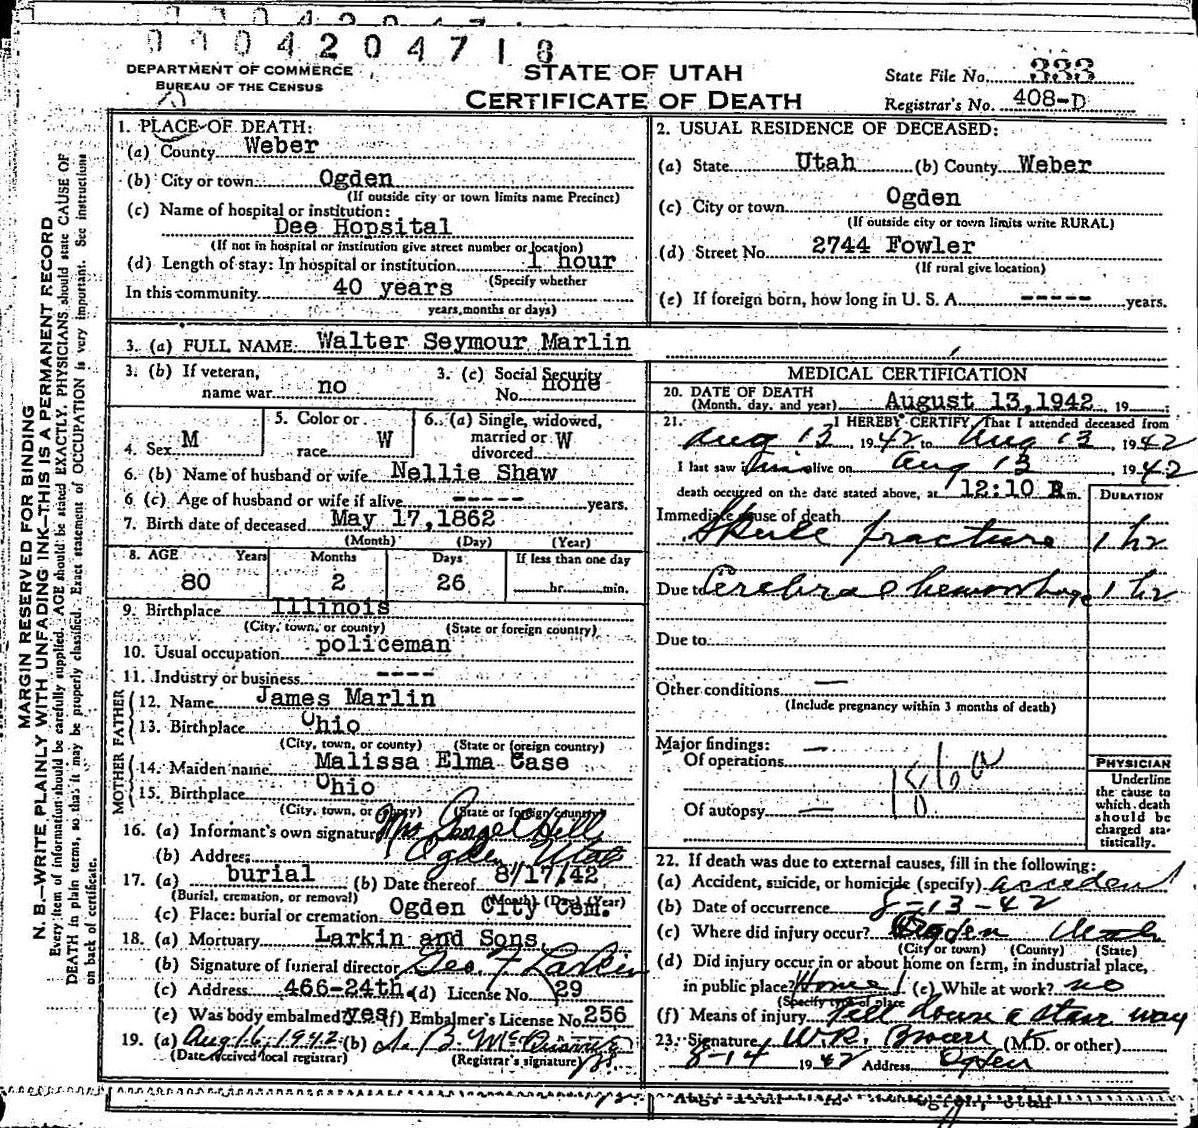 0004204718
DEPARTMENT OF COMMERCE
BUREAU OF THE CENSUS
STATE OF UTAH
CERTIFICATE OF DEATH
State File No. 333
Registrar's No. 408-D
MARGIN RESERVED FOR BINDING
N. B.—WRITE PLAINLY WITH UNFADING INK—THIS IS A PERMANENT RECORD
Every item of information should be carefully supplied. AGE should be stated EXACTLY. PHYSICIANS should state CAUSE OF
DEATH in plain terms, so that it may be properly classified. Exact statement of OCCUPATION is very important. See instructions
on back of certificate.
1. PLACE OF DEATH:
(a) County Weber
(b) City or town Ogden
(If outside city or town limits name Precinct)
(c) Name of hospital or institution:
Dee Hopsital
(If not in hospital or institution give street number or location)
(d) Length of stay: In hospital or institution 1 hour
(Specify whether
In this community 40 years
years, months or days)
2. USUAL RESIDENCE OF DECEASED:
(a) State Utah (b) County Weber
(c) City or town Ogden
(If outside city or town limits write RURAL)
(d) Street No. 2744 Fowler
(If rural give location)
(e) If foreign born, how long in U. S. A. ----- years.
3. (a) FULL NAME: Walter Seymour Marlin
3. (b) If veteran, name war no
3. (c) Social Security No. none
4. Sex M
5. Color or race W
6. (a) Single, widowed, married or divorced W
6. (b) Name of husband or wife Nellie Shaw
6 (c) Age of husband or wife if alive ----- years.
7. Birth date of deceased May 17,1862
(Month) (Day) (Year)
8. AGE Years Months Days If less than one day
80 2 26 hr. min.
9. Birthplace Illinois
(City, town, or county) (State or foreign country)
10. Usual occupation policeman
11. Industry or business ----
FATHER
12. Name James Marlin
13. Birthplace Ohio
(City, town, or county) (State or foreign country)
MOTHER
14. Maiden name Malissa Elma Case
15. Birthplace Ohio
(City, town, or county) (State or foreign country)
16. (a) Informant's own signature Mrs
(b) Address Ogden Utah
17. (a) burial (b) Date thereof 8/17/42
(Burial, cremation, or removal) (Month) (Day) (Year)
(c) Place: burial or cremation Ogden City Cem.
18. (a) Mortuary Larkin and Sons,
(b) Signature of funeral director Geo. F Larkin
(c) Address 466-24th. (d) License No. 29
(e) Was body embalmed yes (f) Embalmer's License No. 256
19. (a) Aug 16, 1942 (b)
(Date received local registrar) (Registrar's signature)
MEDICAL CERTIFICATION
20. DATE OF DEATH
(Month, day, and year) August 13,1942, 19
21. I HEREBY CERTIFY, That I attended deceased from
Aug 13 1942 to Aug 13 1942
I last saw him alive on Aug 13 1942
death occurred on the date stated above, at 12:10 P.m.
DURATION
Immediate cause of death
Skull fracture 1 hr
Due to Cerebral hemorrhage 1 hr
Due to
Other conditions —
(Include pregnancy within 3 months of death)
Major findings:
Of operations —
Of autopsy —
PHYSICIAN
Underline
the cause to
which death
should be
charged sta-
tistically.
22. If death was due to external causes, fill in the following:
(a) Accident, suicide, or homicide (specify) accident
(b) Date of occurrence 8-13-42
(c) Where did injury occur? Ogden Utah
(City or town) (County) (State)
(d) Did injury occur in or about home on farm, in industrial place,
in public place? Home (e) While at work? no
(Specify type of place
(f) Means of injury Fell down a stair way
23. Signature W.R. (M.D. or other)
8-14 1942 Address Ogden